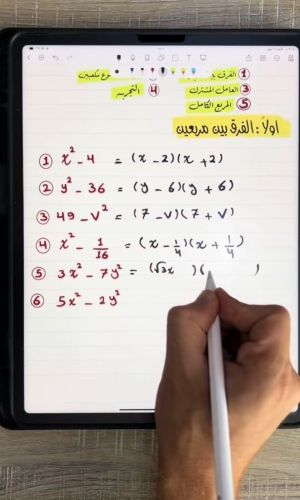 ① الفرق بين
③ العامل المشترك ④ التجربة
⑤ المربع الكامل
اولاً : الفرق بين مربعين
① x² - 4 = (x - 2)(x + 2)
② y² - 36 = (y - 6)(y + 6)
③ 49 - v² = (7 - v)(7 + v)
④ x² - 1/16 = (x - 1/4)(x + 1/4)
⑤ 3x² - 7y² = (√3x )( )
⑥ 5x² - 2y²